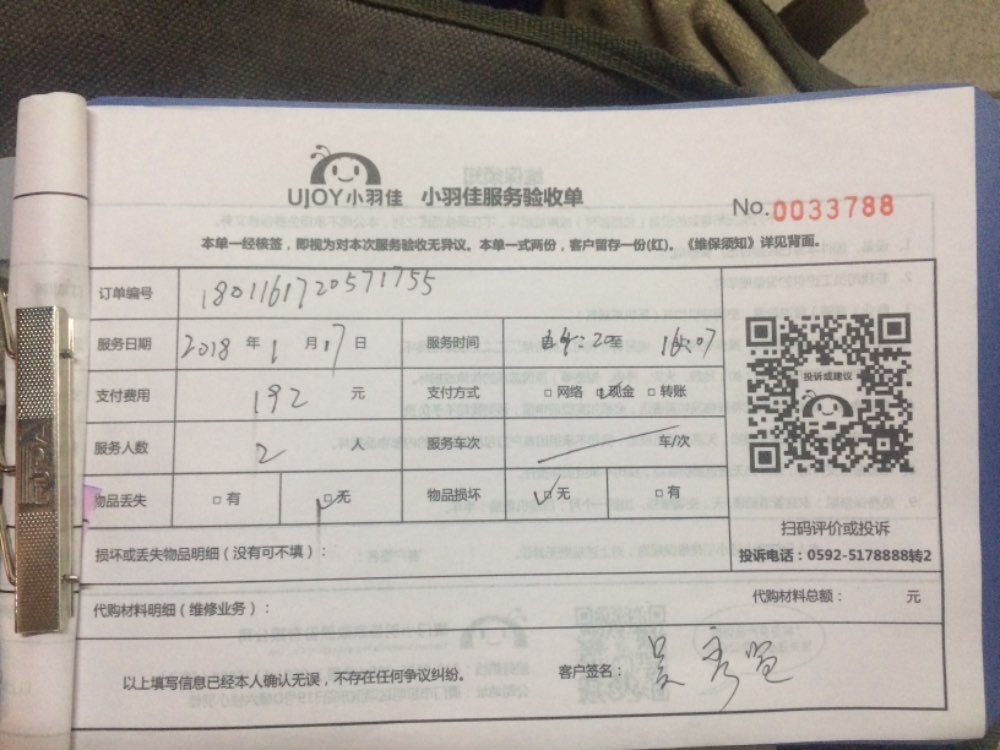 UJOY小羽佳 小羽佳服务验收单
No.0033788
本单一经核签，即视为对本次服务验收无异议。本单一式两份，客户留存一份(红)。《维保须知》详见背面。
订单编号 1801161720571755
服务日期 2018 年 1 月 17 日 服务时间 16:07
支付费用 192 元 支付方式 □网络 □现金 □转账
服务人数 2 人 服务车次 车/次
物品丢失 □有 □无 物品损坏 □无 □有
投诉或建议
扫码评价或投诉
损坏或丢失物品明细（没有可不填）：
投诉电话：0592-5178888转2
代购材料明细（维修业务）： 代购材料总额： 元
以上填写信息已经本人确认无误，不存在任何争议纠纷。 客户签名：吴秀